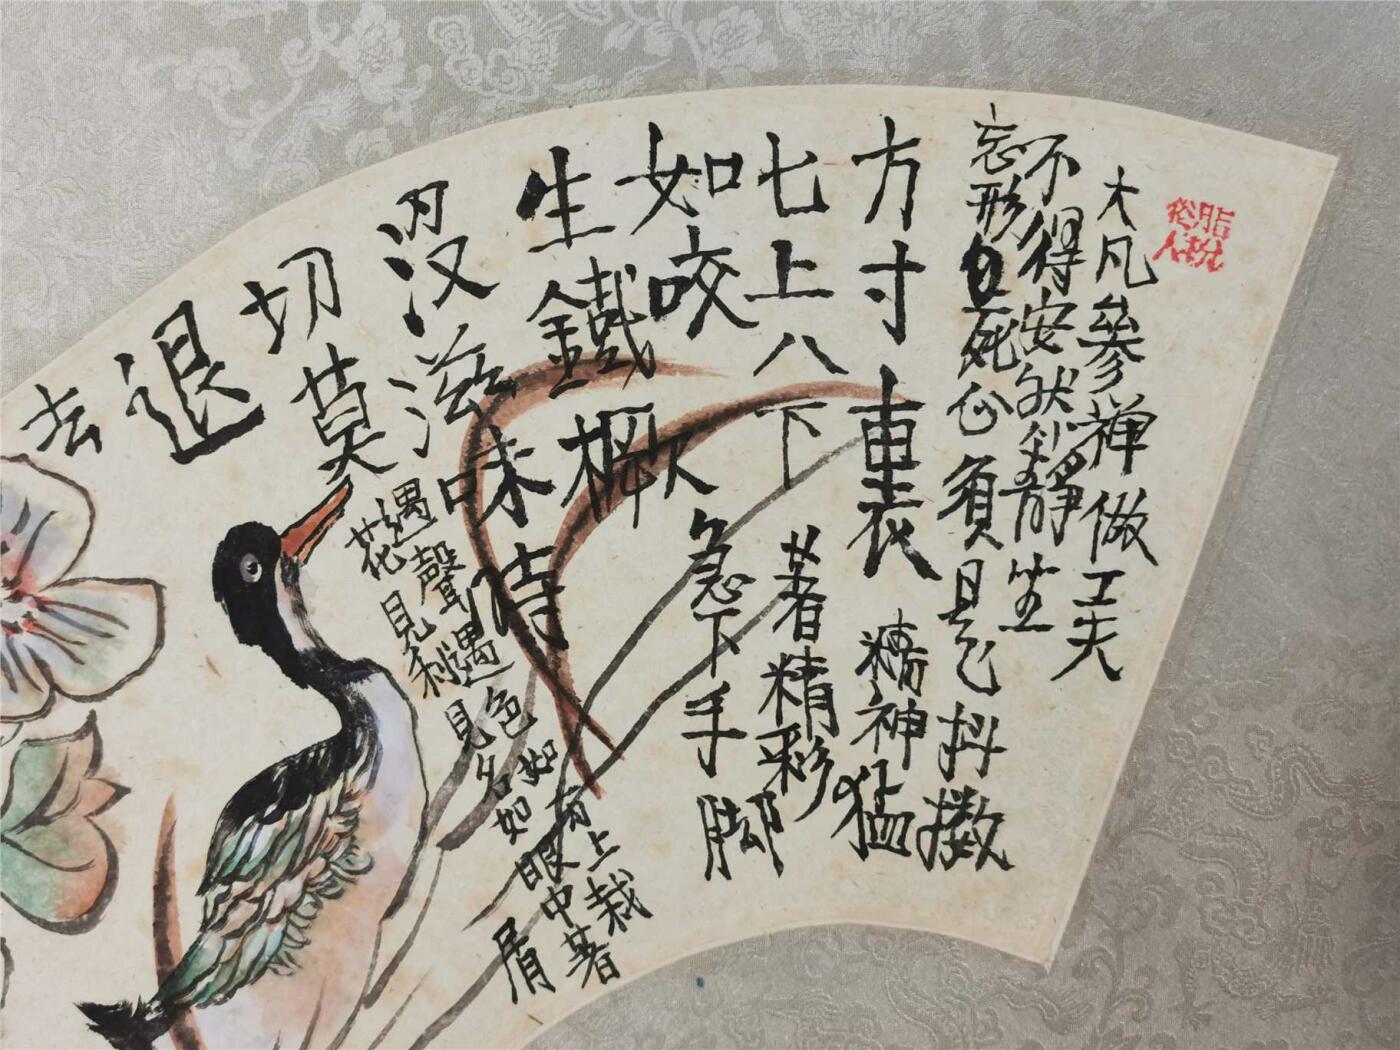 大凡參禪做工夫
不得安然靜坐
忘形自死必須是抖擻
精神猛
著精彩
急下手脚
方寸裏
七上八下
如咬
生鐵橛
沒滋味時
切莫
退
去
遇聲遇色如石上栽
花見利見名如眼中著
屑